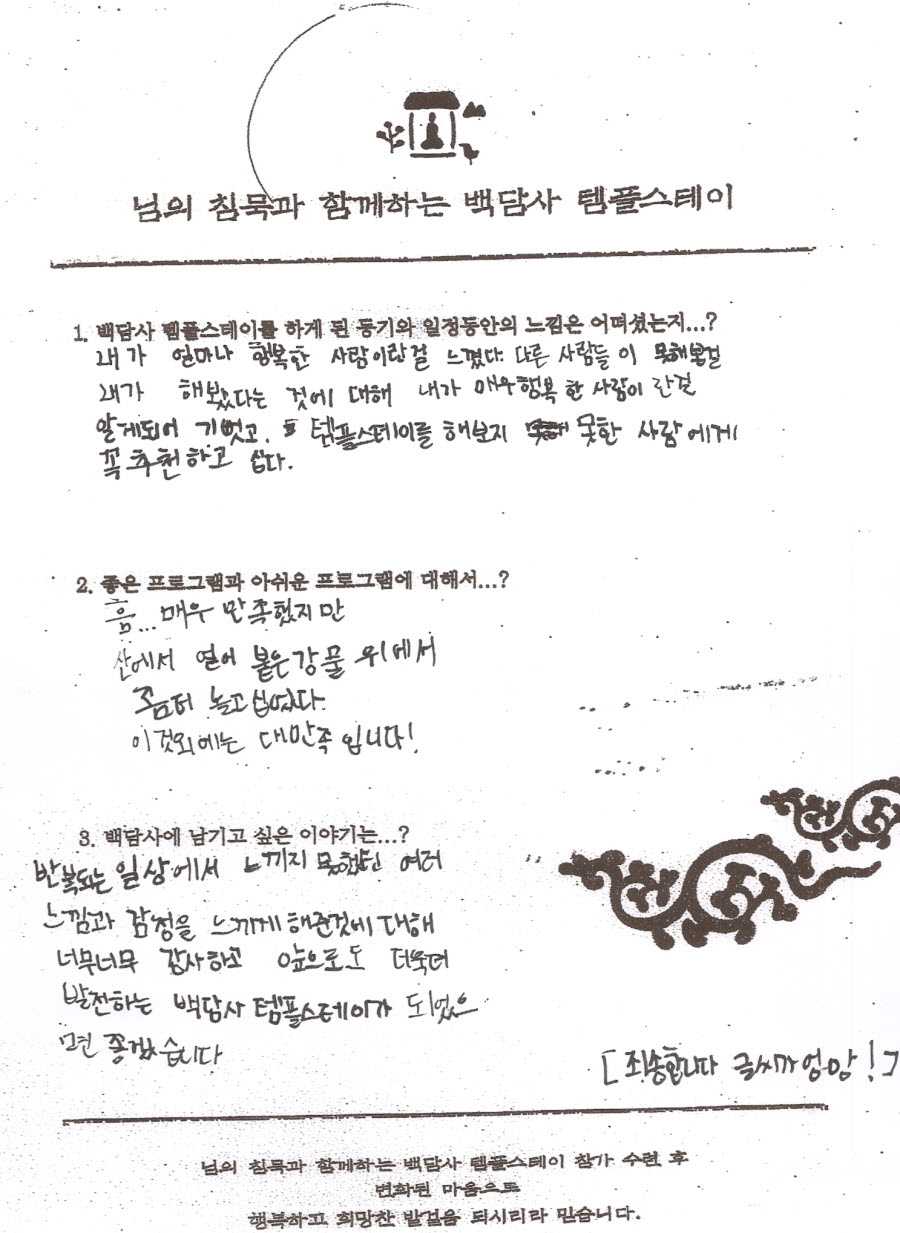 님의 침묵과 함께하는 백담사 템플스테이
1. 백담사 템플스테이를 하게 된 동기와 일정동안의 느낌은 어떠셨는지...?
내가 얼마나 행복한 사람이란걸 느꼈다. 다른 사람들이 못해본걸
내가 해봤다는 것에 대해 내가 매우행복한 사람이란걸
알게되어 기뻣고. 템플스테이를 해보지 못한 사람에게
꼭 추천하고 십다.
2. 좋은 프로그램과 아쉬운 프로그램에 대해서...?
흠... 매우 만족했지만
산에서 얼어 붙은강물 위에서
좀더 놀고십었다.
이것외에는 대만족입니다!
3. 백담사에 남기고 싶은 이야기는...?
반복되는 일상에서 느끼지 못했던 여러
느낌과 감정을 느끼게 해준것에 대해
너무너무 감사하고 앞으로도 더욱더
발전하는 백담사 템플스테이가 되었으
면 좋겠습니다
[죄송합니다 글씨가 엉망!]
님의 침묵과 함께하는 백담사 템플스테이 참가 수련 후
변화된 마음으로
행복하고 희망찬 발걸음 되시리라 믿습니다.